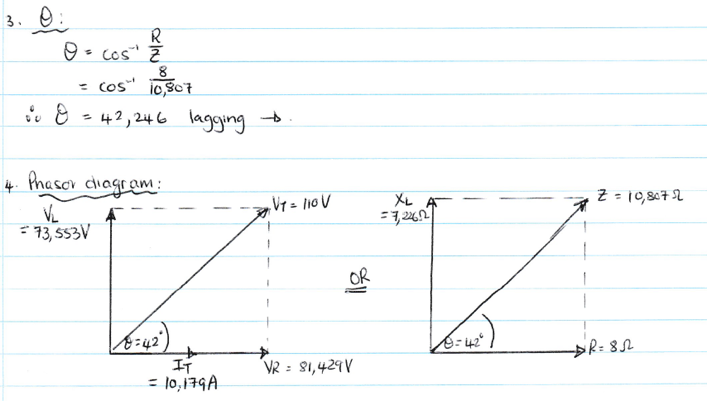 3. θ:
θ = cos⁻¹ R/Z
= cos⁻¹ 8/10,807
∴ θ = 42,246 lagging →.
4. Phasor diagram:
VL = 73,553V
VT = 110V
θ=42°
IT = 10,179A
VR = 81,429V
OR
XL = 7,226Ω
Z = 10,807Ω
θ=42°
R = 8Ω